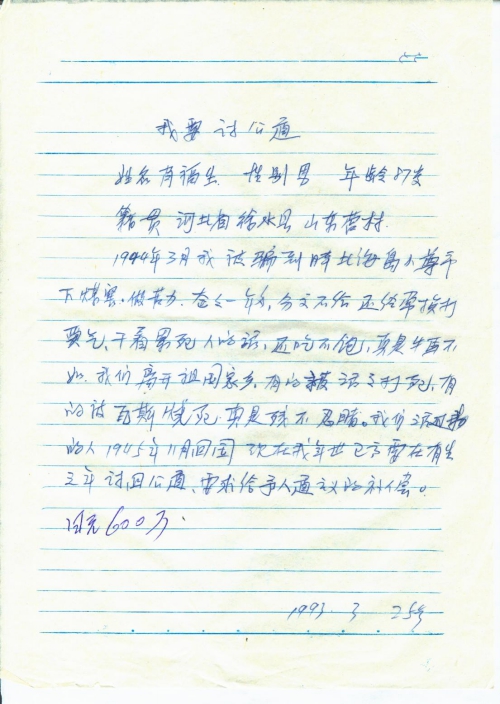 我要讨公道
姓名 福生 性别男 年龄87岁
籍贯 河北省徐水县山东营村
1944年3月我被骗到 北海島小樽市
下煤窑。做苦力。 一年多,分文不给还经常挨打
受气、干着累死人的活,还吃不饱,真是牛马不
如。我们离开祖国家乡,有的被活活打死,有
的被瓦斯烧死,真是残不忍睹。我们活
的人1945年11月回国 现在我年世已高要在有生
之年讨回公道、要求给予人道主义的补偿。
日元600万.
1993. 3 25号